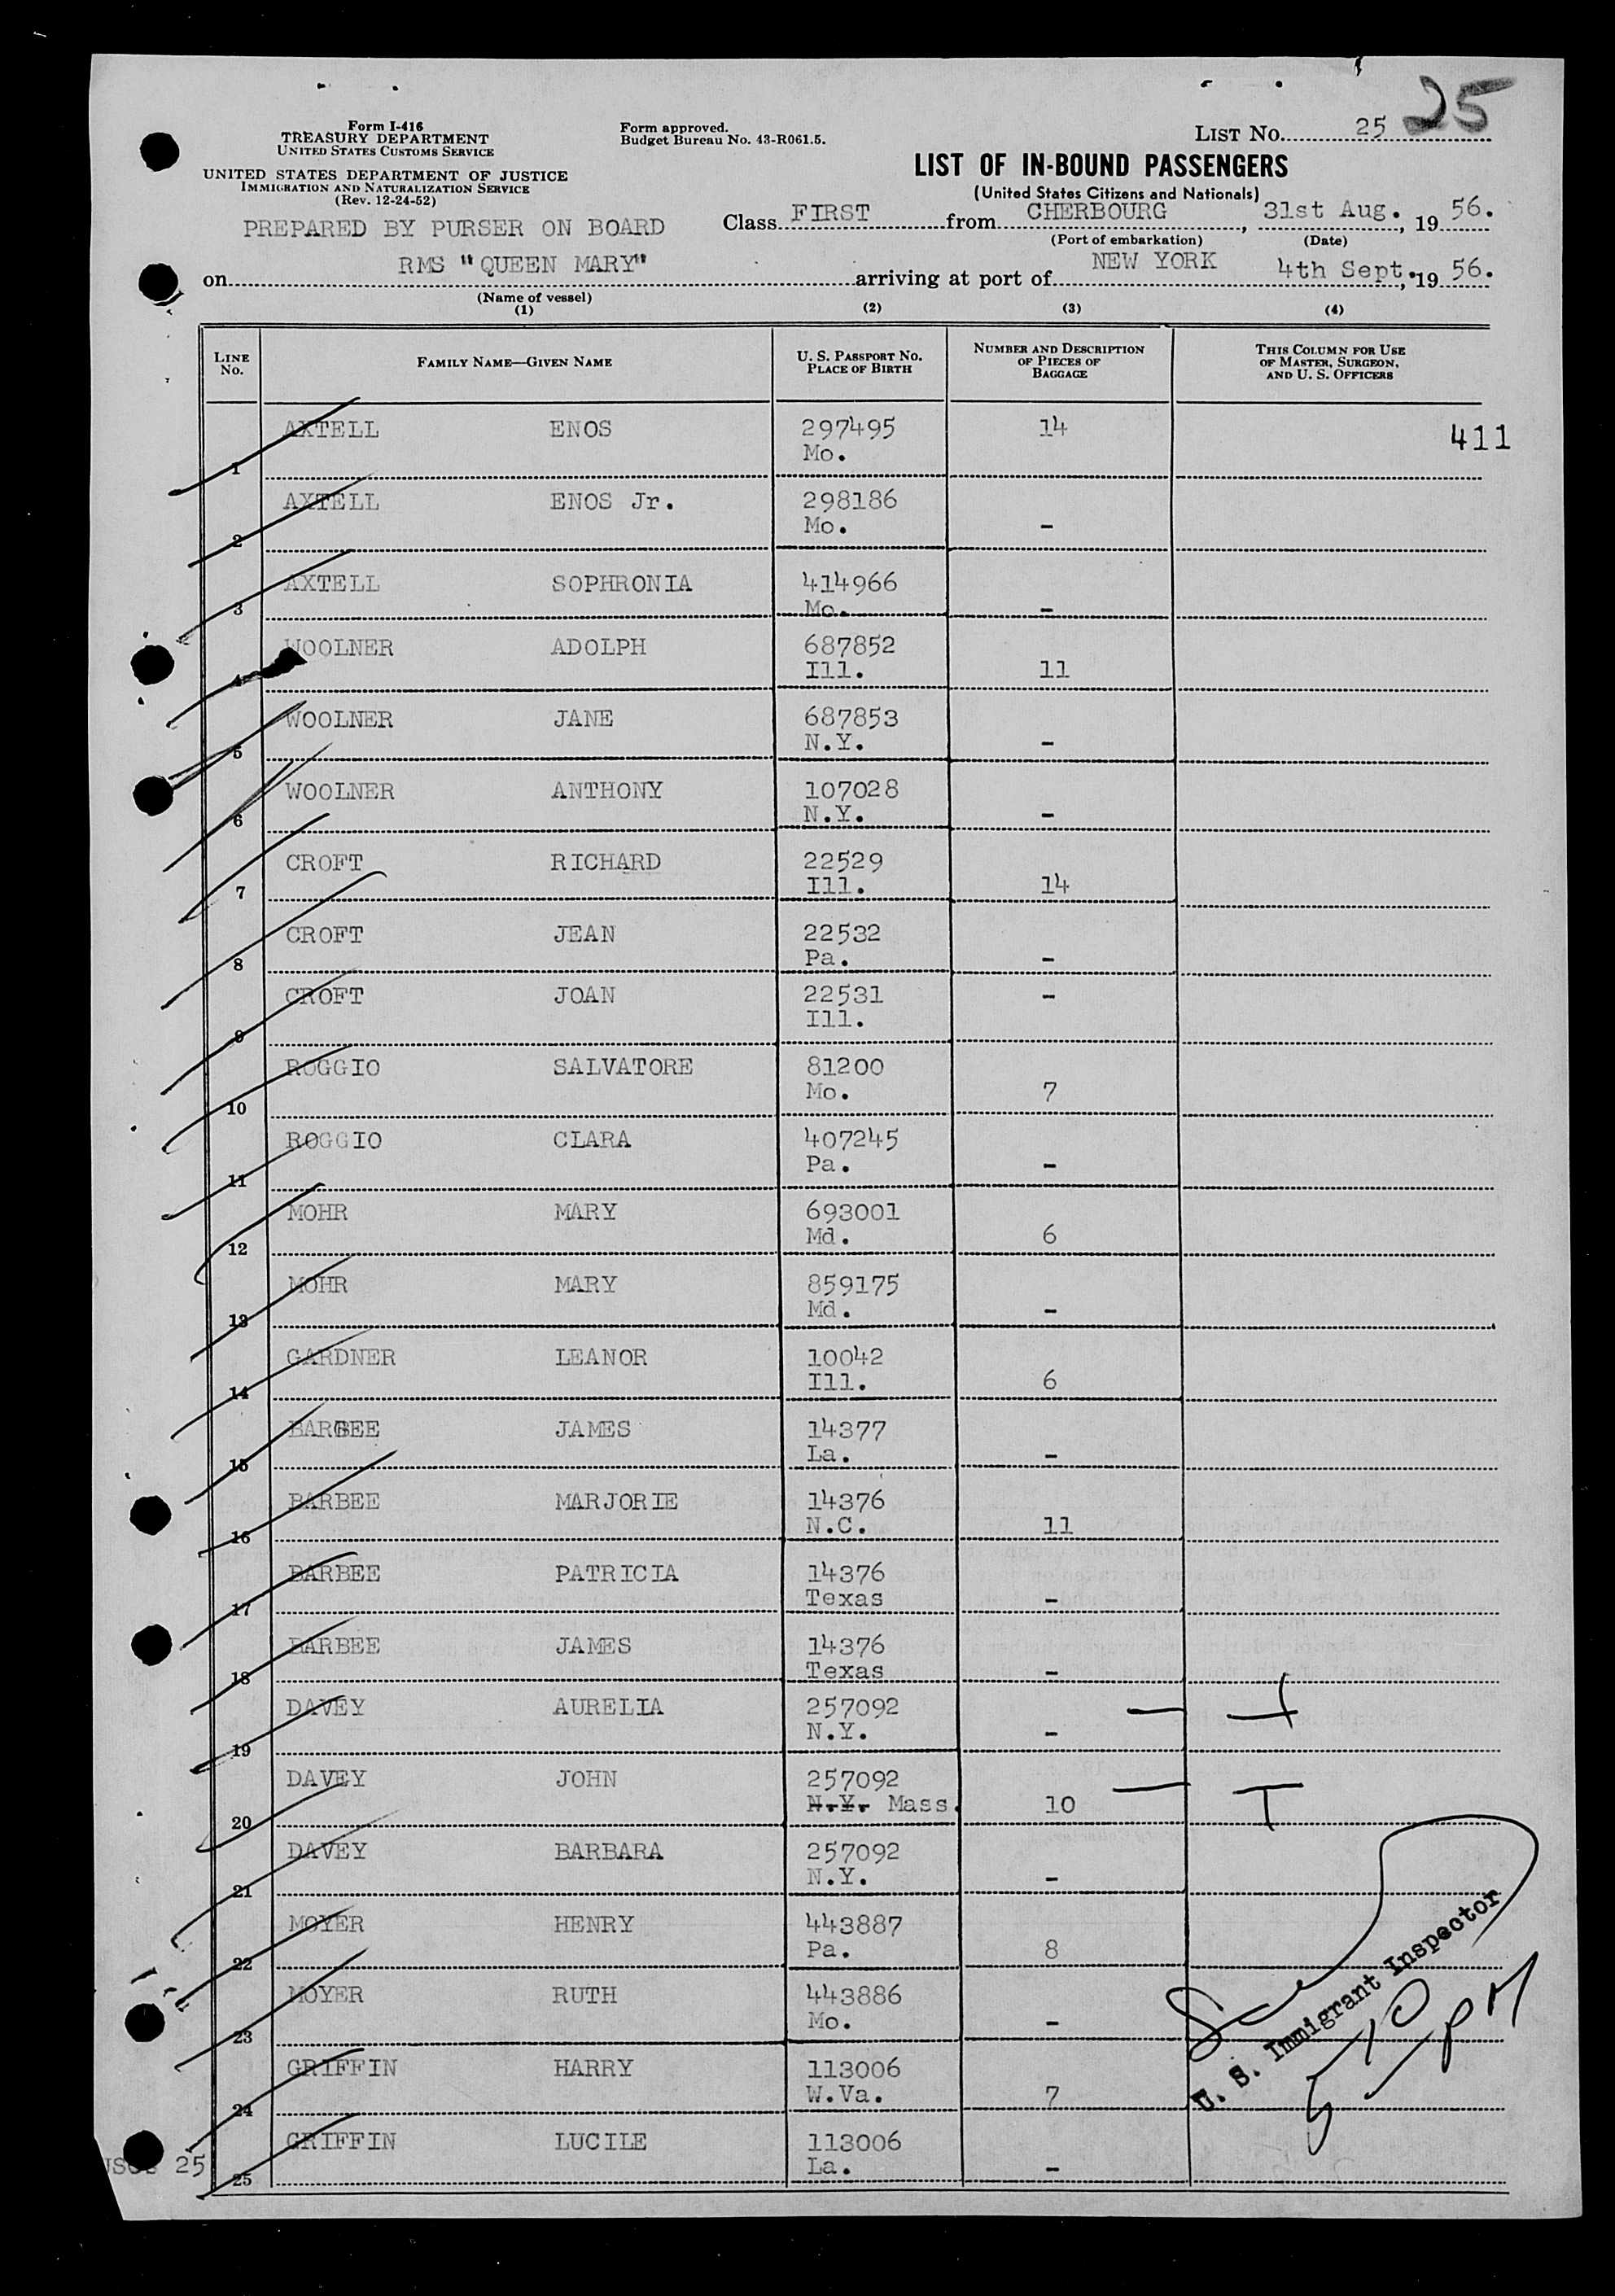 25
Form I-416
TREASURY DEPARTMENT
UNITED STATES CUSTOMS SERVICE
Form approved.
Budget Bureau No. 43-R061.5.
LIST NO. 25
UNITED STATES DEPARTMENT OF JUSTICE
IMMIGRATION AND NATURALIZATION SERVICE
(Rev. 12-24-52)
LIST OF IN-BOUND PASSENGERS
(United States Citizens and Nationals)
PREPARED BY PURSER ON BOARD
Class FIRST from CHERBOURG, 31st Aug., 19 56.
(Port of embarkation) (Date)
on RMS "QUEEN MARY" arriving at port of NEW YORK 4th Sept., 19 56.
(Name of vessel)
(1) (2) (3) (4)
LINE NO.
FAMILY NAME—GIVEN NAME
U. S. PASSPORT NO.
PLACE OF BIRTH
NUMBER AND DESCRIPTION
OF PIECES OF
BAGGAGE
THIS COLUMN FOR USE
OF MASTER, SURGEON,
AND U. S. OFFICERS
AXTELL ENOS 297495 14 411
1 Mo.
AXTELL ENOS Jr. 298186
2 Mo. -
AXTELL SOPHRONIA 414966
3 Mo. -
WOOLNER ADOLPH 687852
4 Ill. 11
WOOLNER JANE 687853
5 N.Y. -
WOOLNER ANTHONY 107028
6 N.Y. -
CROFT RICHARD 22529
7 Ill. 14
CROFT JEAN 22532
8 Pa. -
CROFT JOAN 22531 -
9 Ill.
ROGGIO SALVATORE 81200
10 Mo. 7
ROGGIO CLARA 407245
11 Pa. -
MOHR MARY 693001
12 Md. 6
MOHR MARY 859175
13 Md. -
GARDNER LEANOR 10042
14 Ill. 6
BARBEE JAMES 14377
15 La. -
BARBEE MARJORIE 14376
16 N.C. 11
BARBEE PATRICIA 14376
17 Texas -
BARBEE JAMES 14376
18 Texas -
DAVEY AURELIA 257092
19 N.Y. -
DAVEY JOHN 257092
20 N.Y. Mass. 10
DAVEY BARBARA 257092
21 N.Y. -
MOYER HENRY 443887
22 Pa. 8
MOYER RUTH 443886
23 Mo. -
GRIFFIN HARRY 113006
24 W.Va. 7
GRIFFIN LUCILE 113006
25 La. -
U. S. Immigrant Inspector
5 10 PM
25